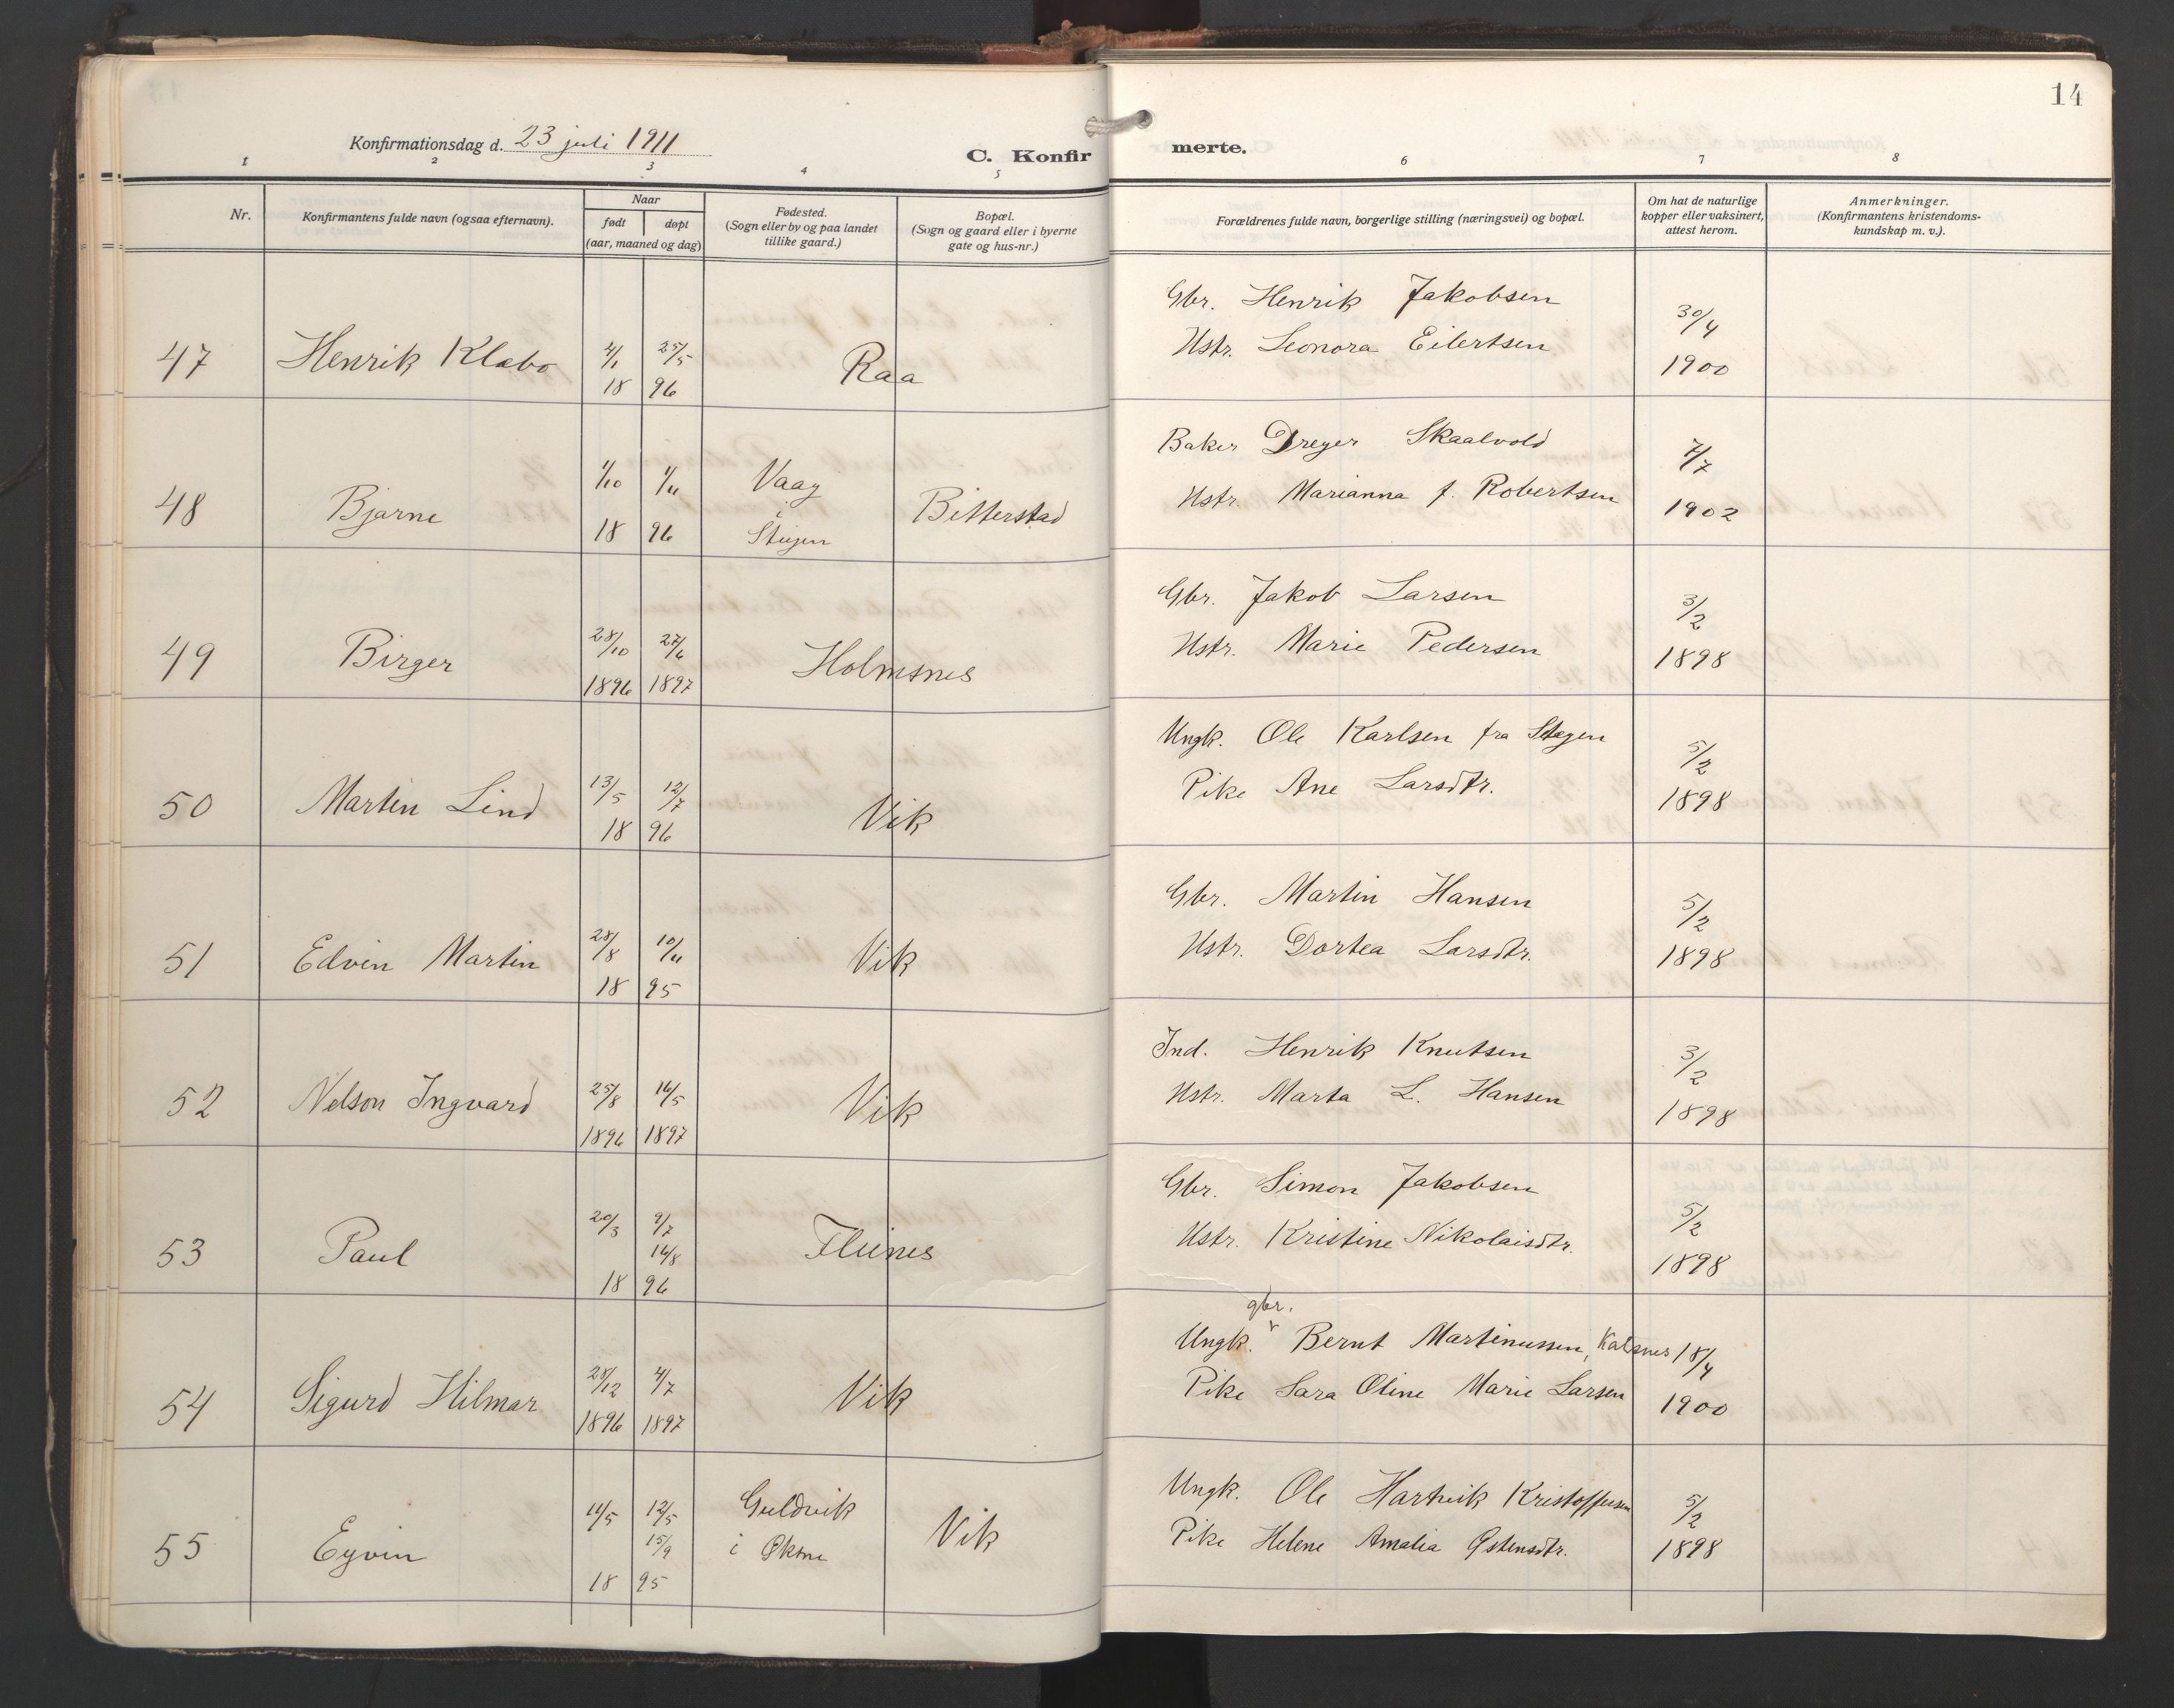 14
Konfirmationsdag d. 23 juli 1911
C. Konfirmerte.
1 2 3 4 5 6 7 8
Nr.
Konfirmantens fulde navn (ogsaa efternavn).
Naar
født døpt
(aar, maaned og dag)
Fødested.
(Sogn eller by og paa landet
tillike gaard.)
Bopæl.
(Sogn og gaard eller i byerne
gate og hus-nr.)
Forældrenes fulde navn, borgerlige stilling (næringsvei) og bopæl.
Om hat de naturlige
kopper eller vaksinert,
attest herom.
Anmerkninger.
(Konfirmantens kristendoms-
kundskap m. v.).
47 Henrik Klæbo 4/1 25/5 18 96 Raa
Gbr. Henrik Jakobsen
Hstr. Leonora Eilertsen
30/4
1900
48 Bjarne 1/10 1/11 18 96
Vaag
i
Steigen
Bitterstad
Baker Dreyer Skaalvold
Hstr. Marianna f. Robertsen
7/7
1902
49 Birger 28/10 27/6 1896 1897 Holmsnes
Gbr. Jakob Larsen
Hstr. Marie Pedersen
3/2
1898
50 Martin Lind 13/5 12/7 18 96 Vik
Ungk. Ole Karlsen fra
Pike Ane Larsdtr.
5/2
1898
51 Edvin Martin 28/8 10/11 18 95 Vik
Gbr. Martin Hansen
Hstr. Dortea Larsdtr.
5/2
1898
52 Nelson Ingvard 25/8 16/5 1896 1897 Vik
Ind. Henrik Knutsen
Hstr. Marta L. Hansen
3/2
1898
53 Paul 20/3 9/7 16/8 18 96 Fleines
Gbr. Simon Jakobsen
Hstr. Kristine Nikolaisdtr.
5/2
1898
54 Sigurd Hilmar 28/12 4/7 1896 1897 Vik
gbr.
Ungk. Bernt Martinussen, Kalsnes
Pike Sara Oline Marie Larsen
18/4
1900
55 Eyvin 11/5 12/5 15/9 18 95
Guldvik
i Øksne
Vik
Ungk. Ole Hartvik Kristoffersen
Pike Helene Amalia Østensdtr.
5/2
1898